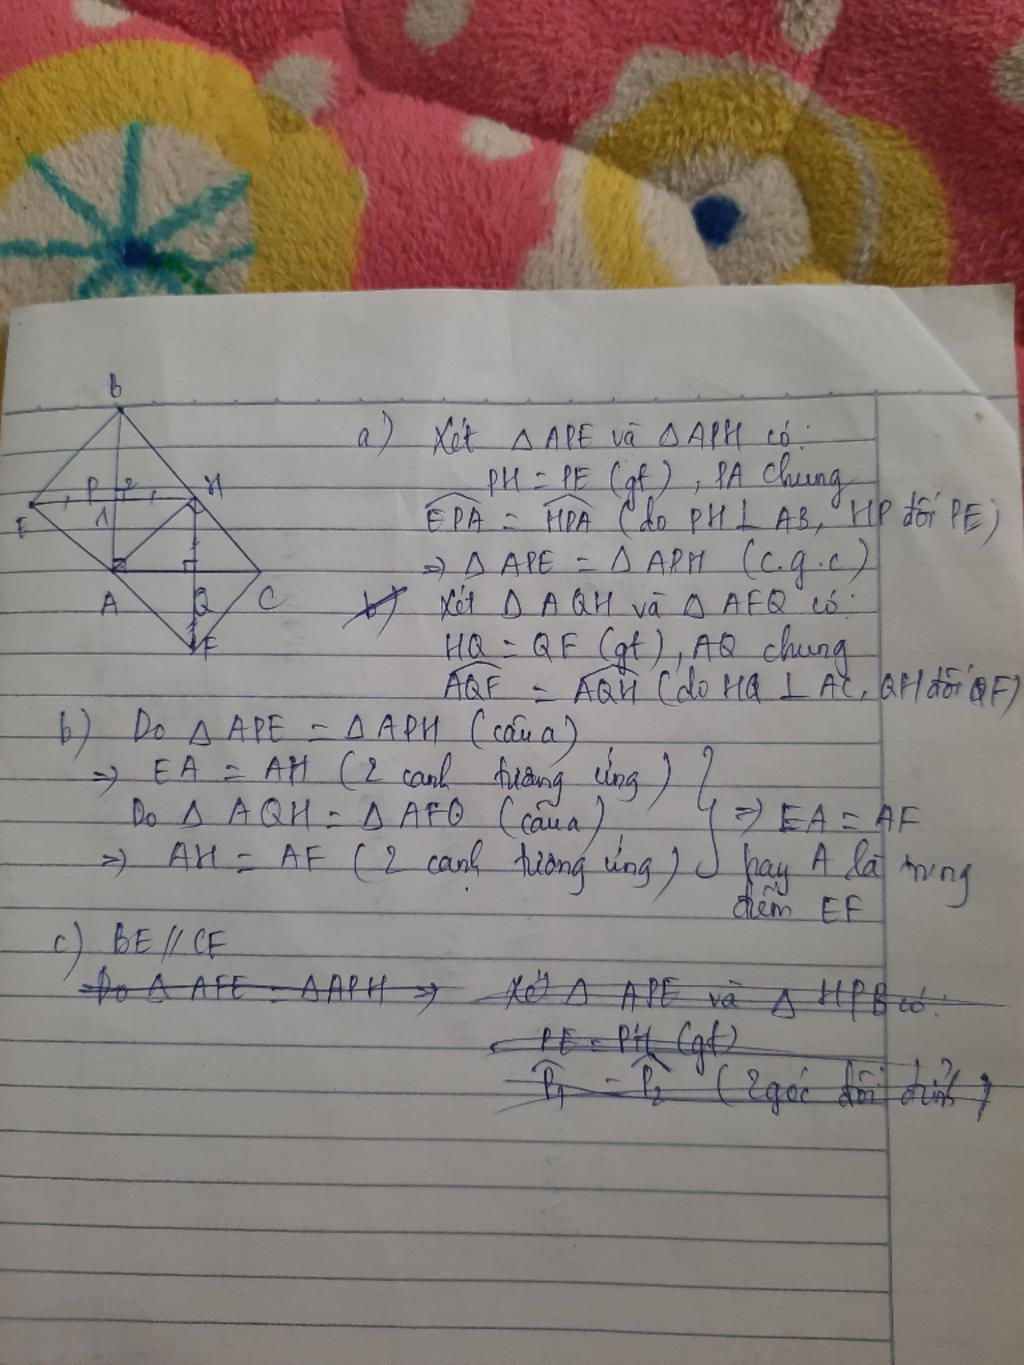 B
P 2 H
E 1
A Q C
F
a) Xét Δ APE và Δ APH có:
PH = PE (gt), PA chung
EPA = HPA (do PH ⊥ AB, HP đối PE)
=> Δ APE = Δ APH (c.g.c)
b) Xét Δ AQH và Δ AFQ có:
HQ = QF (gt), AQ chung
AQF = AQH (do HQ ⊥ AC, QH đối QF)
b) Do Δ APE = Δ APH (câu a)
=> EA = AH (2 cạnh tương ứng)
Do Δ AQH = Δ AFQ (câu a)
=> EA = AF
=> AH = AF (2 cạnh tương ứng)
hay A là trung
điểm EF
c) BE // CF
Do Δ AFE = Δ APH => Xét Δ APE và Δ HPB có:
PE = PH (gt)
P1 = P2 (2 góc đối đỉnh)